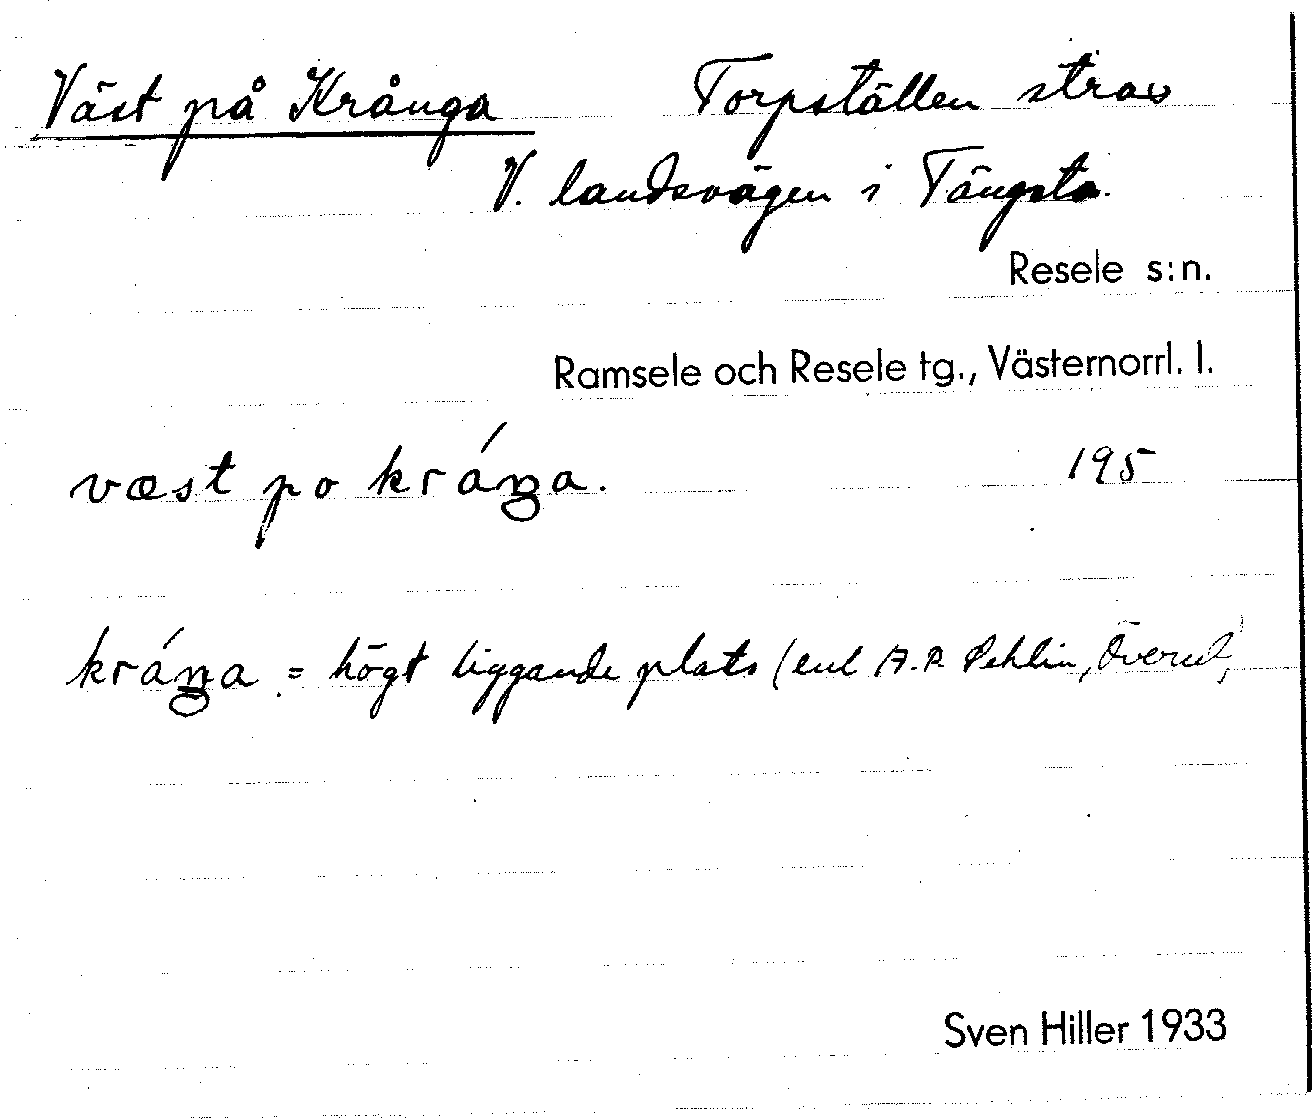 Väst på Krånga Torpställen strax
V. landsvägen i Tängsta.
Resele s:n.
Ramsele och Resele tg., Västernorrl. l.
væst po kráŋa. 195
kráŋa = högt liggande plats (enl A.P. Pehlin,
Sven Hiller 1933